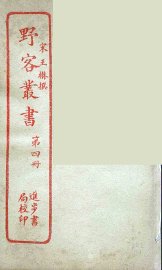 宋王楙撰
野客叢書
第四冊
進步書
局校印